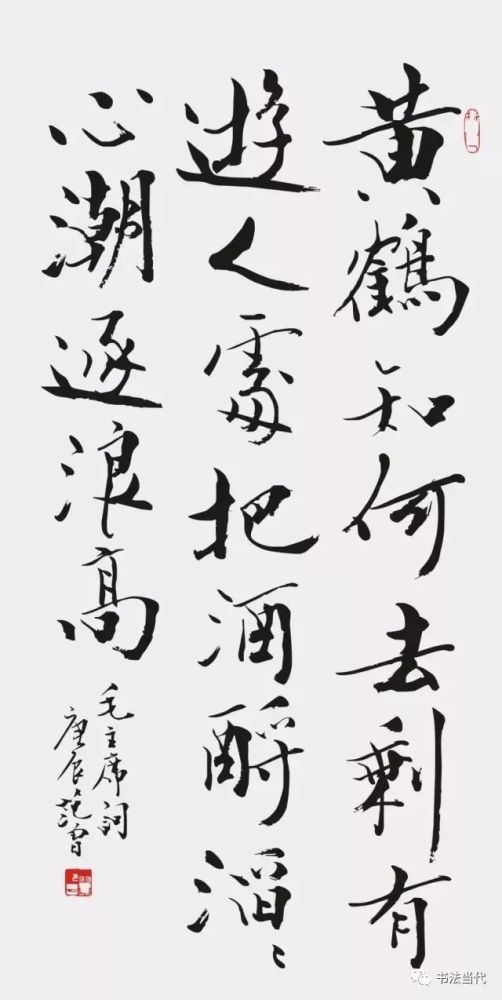 黃鶴知何去剩有
遊人處把酒酹滔〻
心潮逐浪高
毛主席詞
庚辰范曾
书法当代